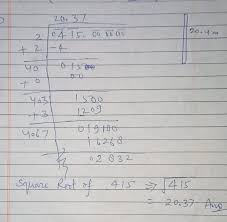 20.37
2 0415.00 0000
+ 2 -4
40 0 1500
+ 0 00
403 1500
+ 3 1209
4067 019100
16268
02832
Square Root of 415 ⇒ √415
= 20.37 Ans